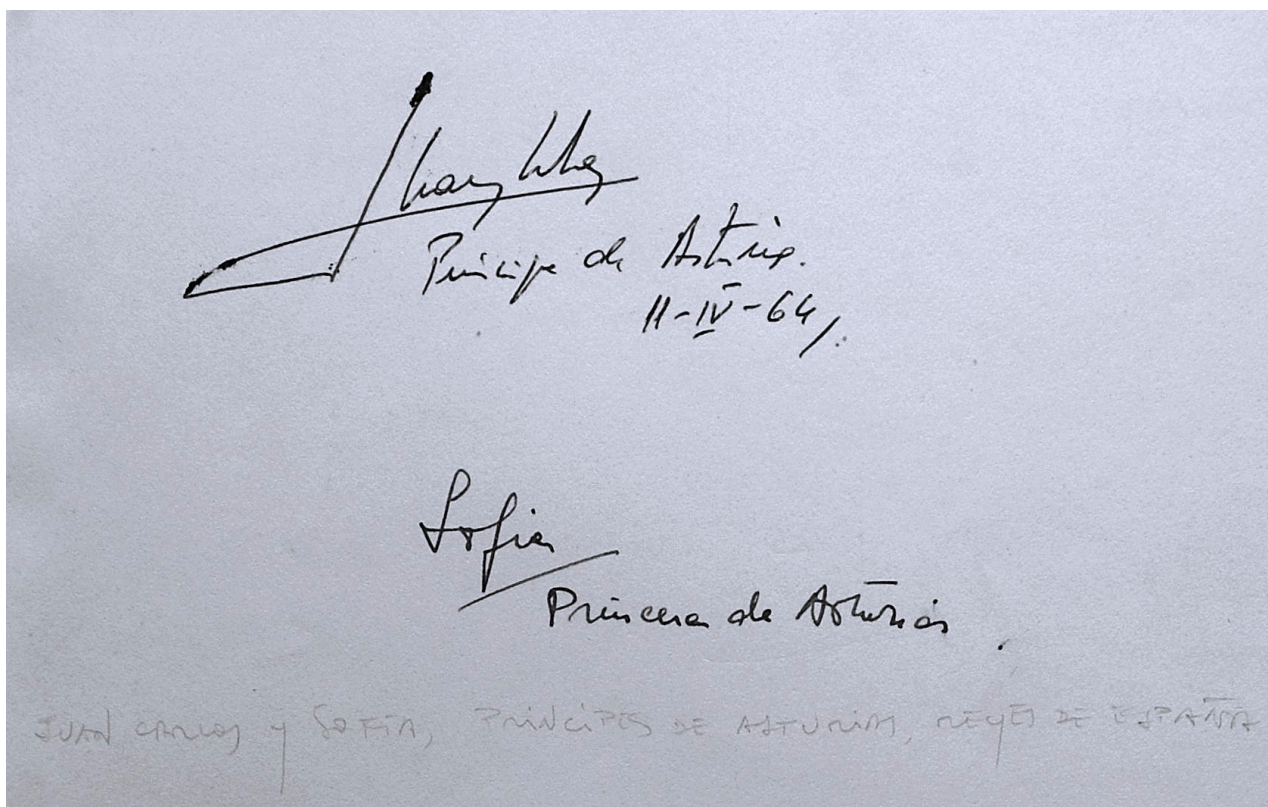 Juan Carlos
Príncipe de Asturias.
11-IV-64,.
Sofia
Princesa de Asturias.
JUAN CARLOS y SOFÍA, PRÍNCIPES DE ASTURIAS, REYES DE ESPAÑA